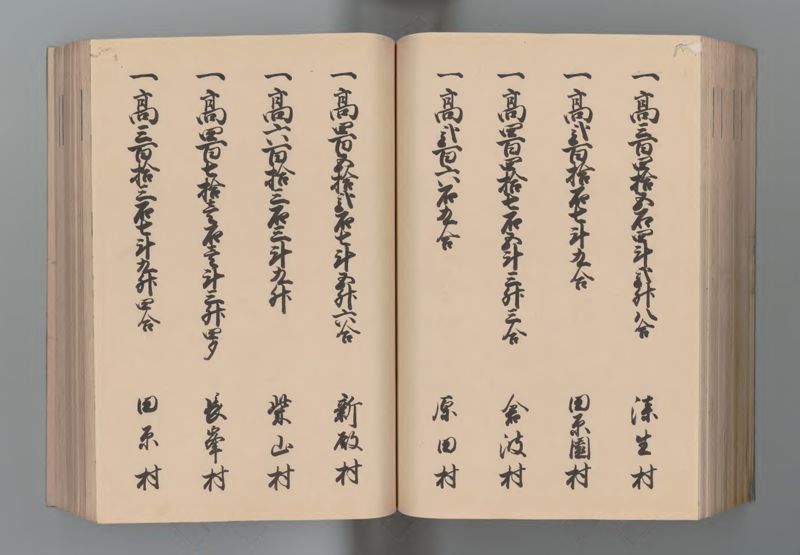 一高三百四拾五石四斗弐升八合 漆生村
一高弐百拾石七斗九合 田原園村
一高四百四拾七石五斗三升三合 倉波村
一高弐百六石九合 原田村
一高四百五拾弐石七斗五升六合 新殿村
一高六百拾三石三斗九升 柴山村
一高四百七拾壱石壱斗三升四夕 長峯村
一高三百拾三石七斗九升四合 田原村